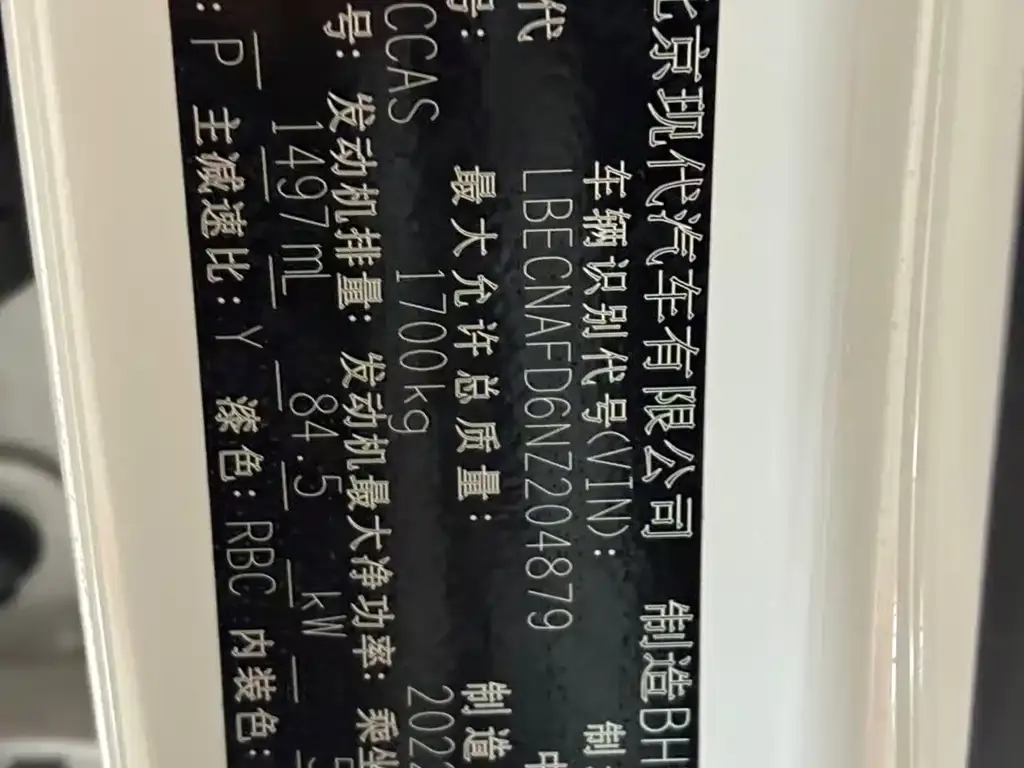 北京现代汽车有限公司 制造BH
代 车辆识别代号(VIN): 制
LBECNAFD6NZ204879 中
号: 最大允许总质量: 制造
CCAS 1700kg 202
号: 发动机排量: 发动机最大净功率: 乘坐
1497mL 84.5 kW
: P 主减速比: Y 漆色: RBC 内装色: